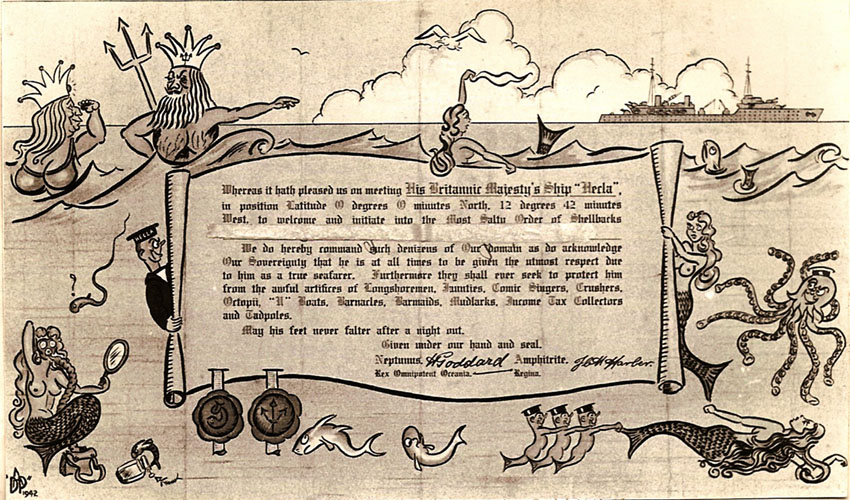 Whereas it hath pleased us on meeting His Britannic Majesty's Ship "Hecla",
in position Latitude 0 degrees 0 minutes North, 12 degrees 42 minutes
West, to welcome and initiate into the Most Salty Order of Shellbacks
We do hereby command such denizens of Our Domain as do acknowledge
Our Sovereignty that he is at all times to be given the utmost respect due
to him as a true seafarer. Furthermore they shall ever seek to protect him
from the awful artifices of Longshoremen, Jaunties, Comic Singers, Crushers,
Octopii, "U" Boats, Barnacles, Barmaids, Mudlarks, Income Tax Collectors
and Tadpoles.
May his feet never falter after a night out.
Given under our hand and seal.
Neptunus. H Goddard Amphitrite.
Rex Omnipotent Oceania. Regina.
HECLA
?
1942